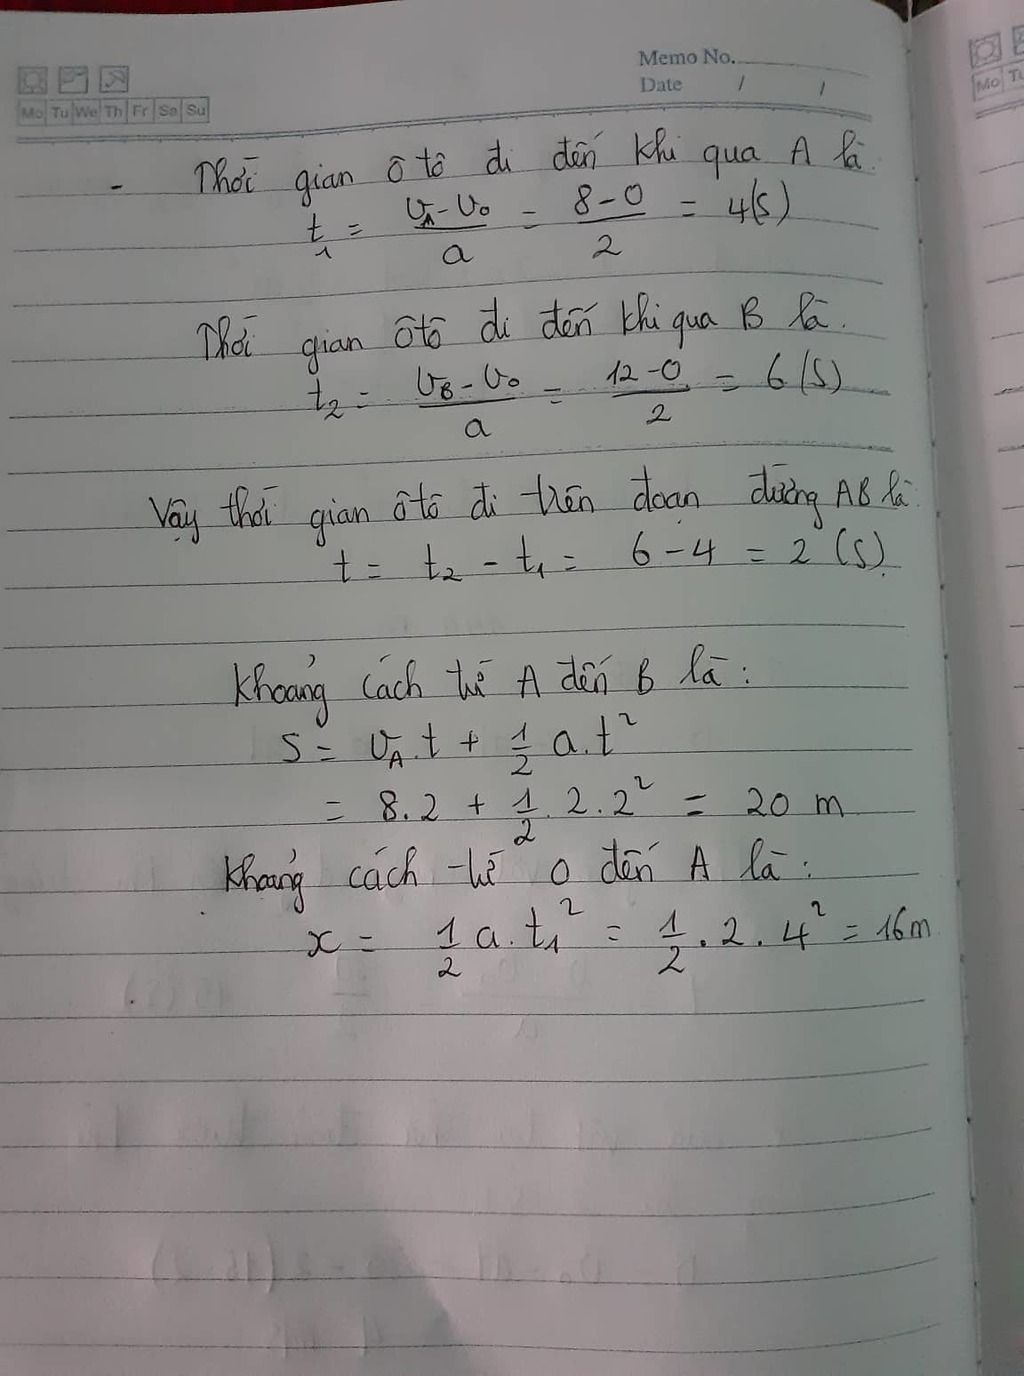 Memo No.
Date / /
Mo Tu We Th Fr Sa Su
Mo
- Thời gian ô tô đi đến khi qua A là
t₁ = (v_A - v₀)/a = (8 - 0)/2 = 4(s)
Thời gian ôtô đi đến khi qua B là.
t₂ = (v_B - v₀)/a = (12 - 0)/2 = 6 (s)
Vậy thời gian ôtô đi trên đoạn đường AB là
t = t₂ - t₁ = 6 - 4 = 2 (s)
Khoảng cách từ A đến B là:
S = v_A.t + 1/2 a.t²
= 8.2 + 1/2.2.2² = 20 m
Khoảng cách từ O đến A là:
x = 1/2 a.t₁² = 1/2.2.4² = 16m